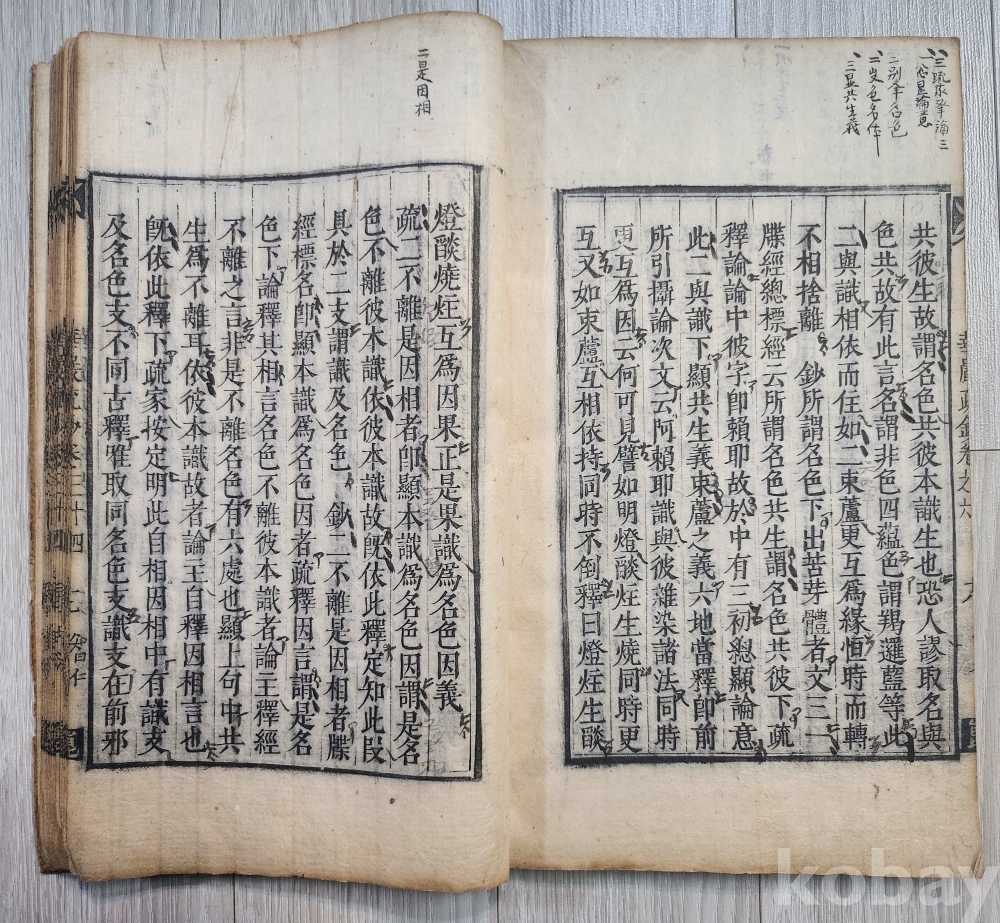 一、三疏家釋論三
二是因相
共彼生故謂名色共彼本識生也恐人謬取名與
色共故有此言名謂非色四蘊色謂羯邏藍等此
二與識相依而住如二束蘆更互爲緣恒時而轉
不相捨離 鈔所謂名色下出苦芽體者文三一
牒經總標經云所謂名色共生謂名色共彼下疏
釋論論中彼字卽賴耶故於中有三初總顯論意
此二與識下顯共生義束蘆之義六地當釋卽前
所引攝論次文云阿賴耶識與彼雜染諸法同時
更互爲因云何可見譬如明燈燄炷生燒同時更
互又如束蘆互相依持同時不倒釋曰燈炷生燄
燈燄燒炷互爲因果正是果識爲名色因義
疏二不離是因相者卽顯本識爲名色因謂是名
色不離彼本識依彼本識故旣依此釋定知此段
具於二支謂識及名色 鈔二不離是因相者牒
經標名卽顯本識爲名色因者疏釋因言謂是名
色下論釋其相言名色不離彼本識者論主釋經
不離之言非是不離名色有六處也顯上句中共
生爲不離耳依彼本識故者論王自釋因相言也
旣依此釋下疏家按定明此自相因相中有識支
及名色支不同古釋雅取同名色支識支在前邪
kobay